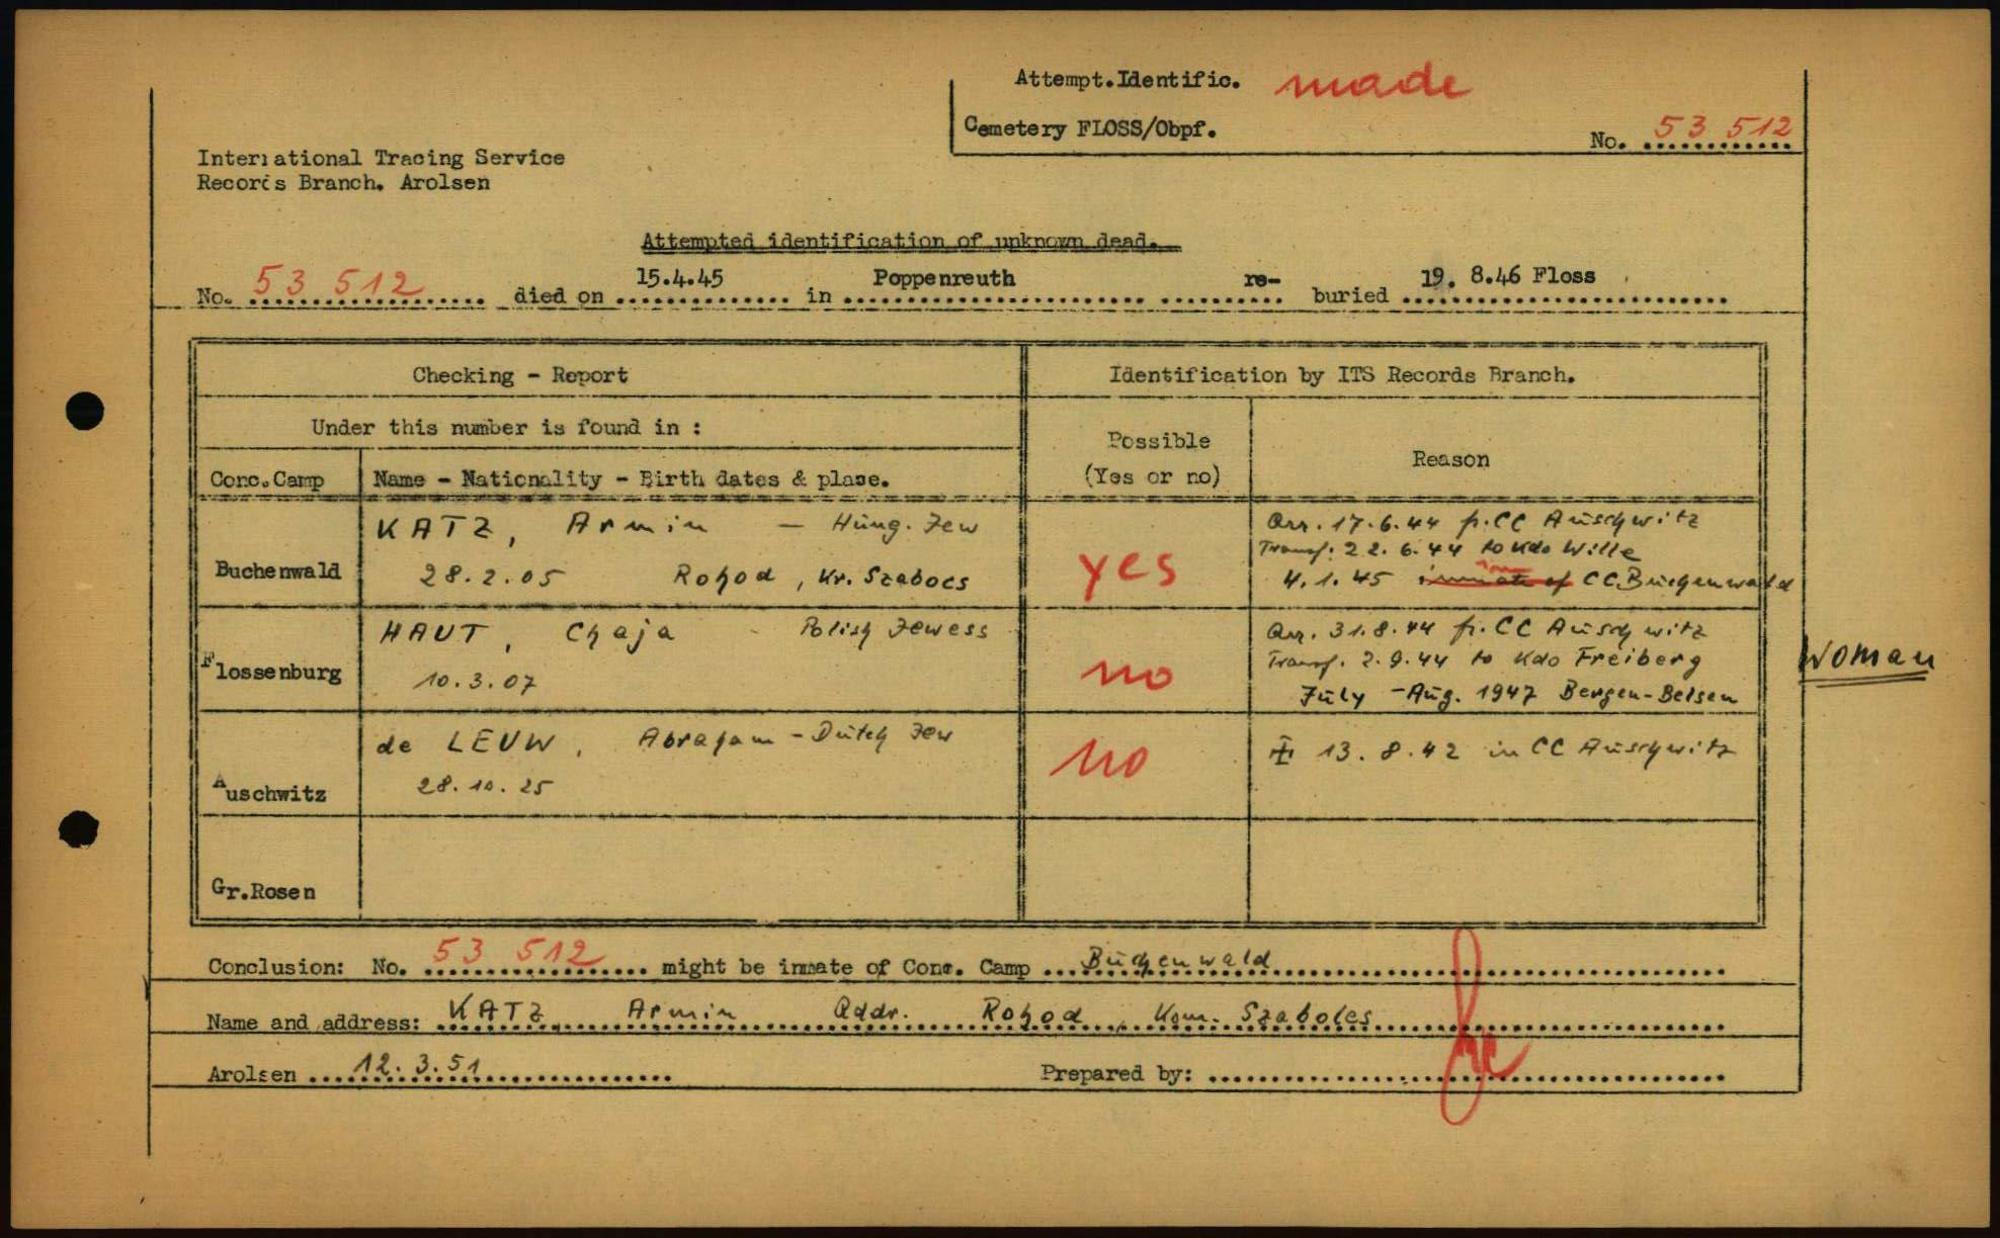 Attempt.Identific. made
Cemetery FLOSS/Obpf.
No. 53 512
International Tracing Service
Records Branch. Arolsen
Attempted identification of unknown dead.
No. 53 512 died on 15.4.45 in Poppenreuth re- buried 19. 8.46 Floss
Checking - Report
Identification by ITS Records Branch.
Under this number is found in :
Possible
(Yes or no)
Reason
Conc.Camp
Name - Nationality - Birth dates & place.
Buchenwald
KATZ, Armin - Hung. Jew
28.2.05 Rohod, Kr. Szabocs
yes
Arr. 17.6.44 fr. CC Auschwitz
Transf. 22.6.44 to Kdo Wille
4.1.45 inmate of CC. Buchenwald
Flossenburg
HAUT, Chaja - Polish Jewess
10.3.07
no
Arr. 31.8.44 fr. CC Auschwitz
Transf. 2.9.44 to Kdo Freiberg
July - Aug. 1947 Bergen-Belsen
Woman
Auschwitz
de LEUW, Abraham - Dutch Jew
28.10.25
no
13.8.42 in CC Auschwitz
Gr.Rosen
Conclusion: No. 53 512 might be inmate of Conc. Camp Buchenwald
Name and address: KATZ Armin Addr. Rohod, Kom. Szaboles
Arolsen 12.3.51
Prepared by: